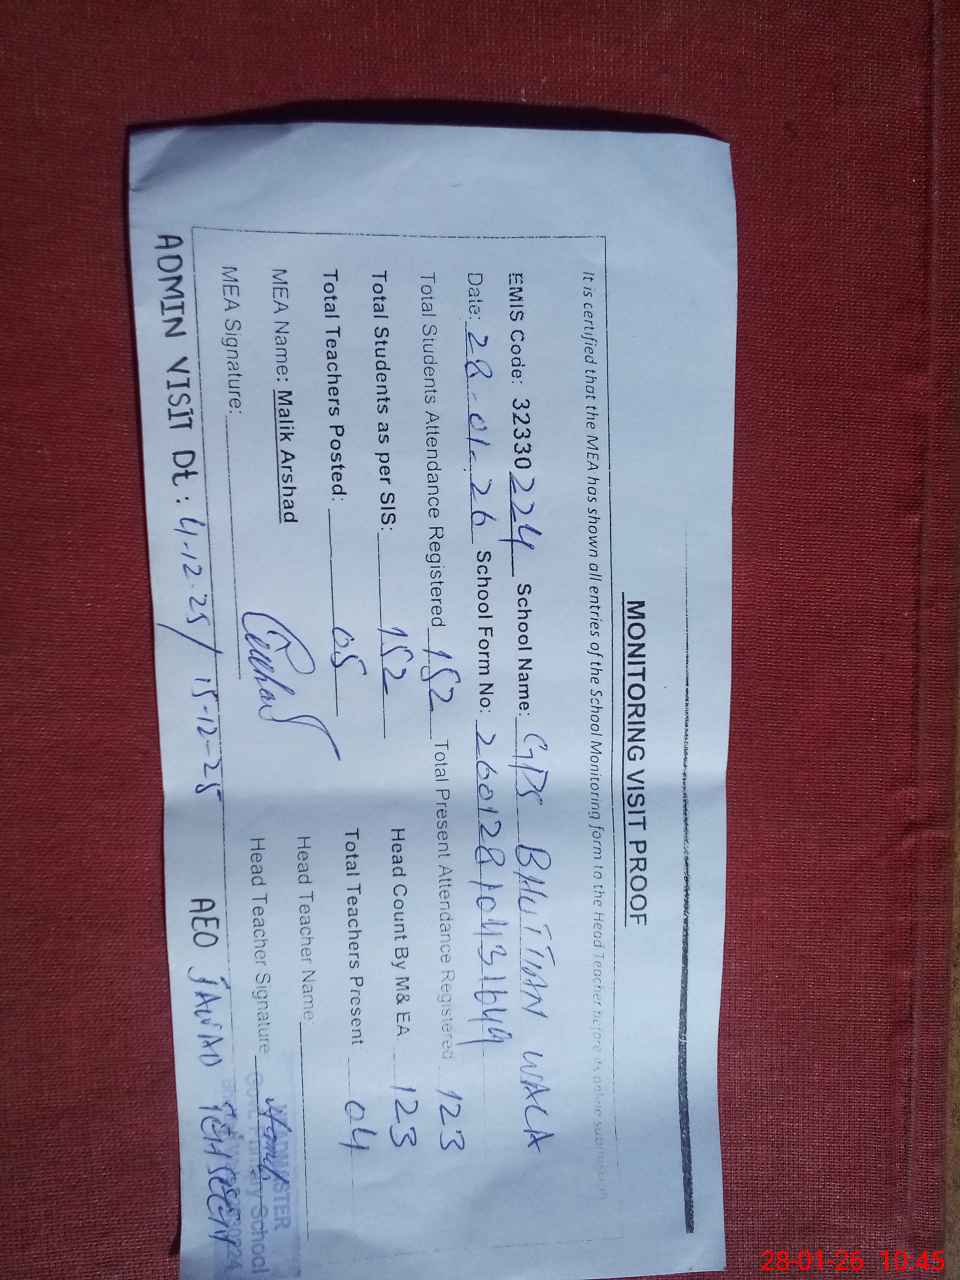 MONITORING VISIT PROOF
It is certified that the MEA has shown all entries of the School Monitoring form to the Head Teacher before its online submission
EMIS Code: 32330224 School Name: GPS BHUTTIAN WALA
Date: 28-01-26 School Form No: 260128104316449
Total Students Attendance Registered 152 Total Present Attendance Registered 123
Total Students as per SIS: 152 Head Count By M& EA 123
Total Teachers Posted: 05 Total Teachers Present 04
MEA Name: Malik Arshad Head Teacher Name:
MEA Signature: Head Teacher Signature
Primary School
ADMIN VISIT Dt: 4-12-25/ 15-12-25 AEO JAWAD
28-01-26 10:45